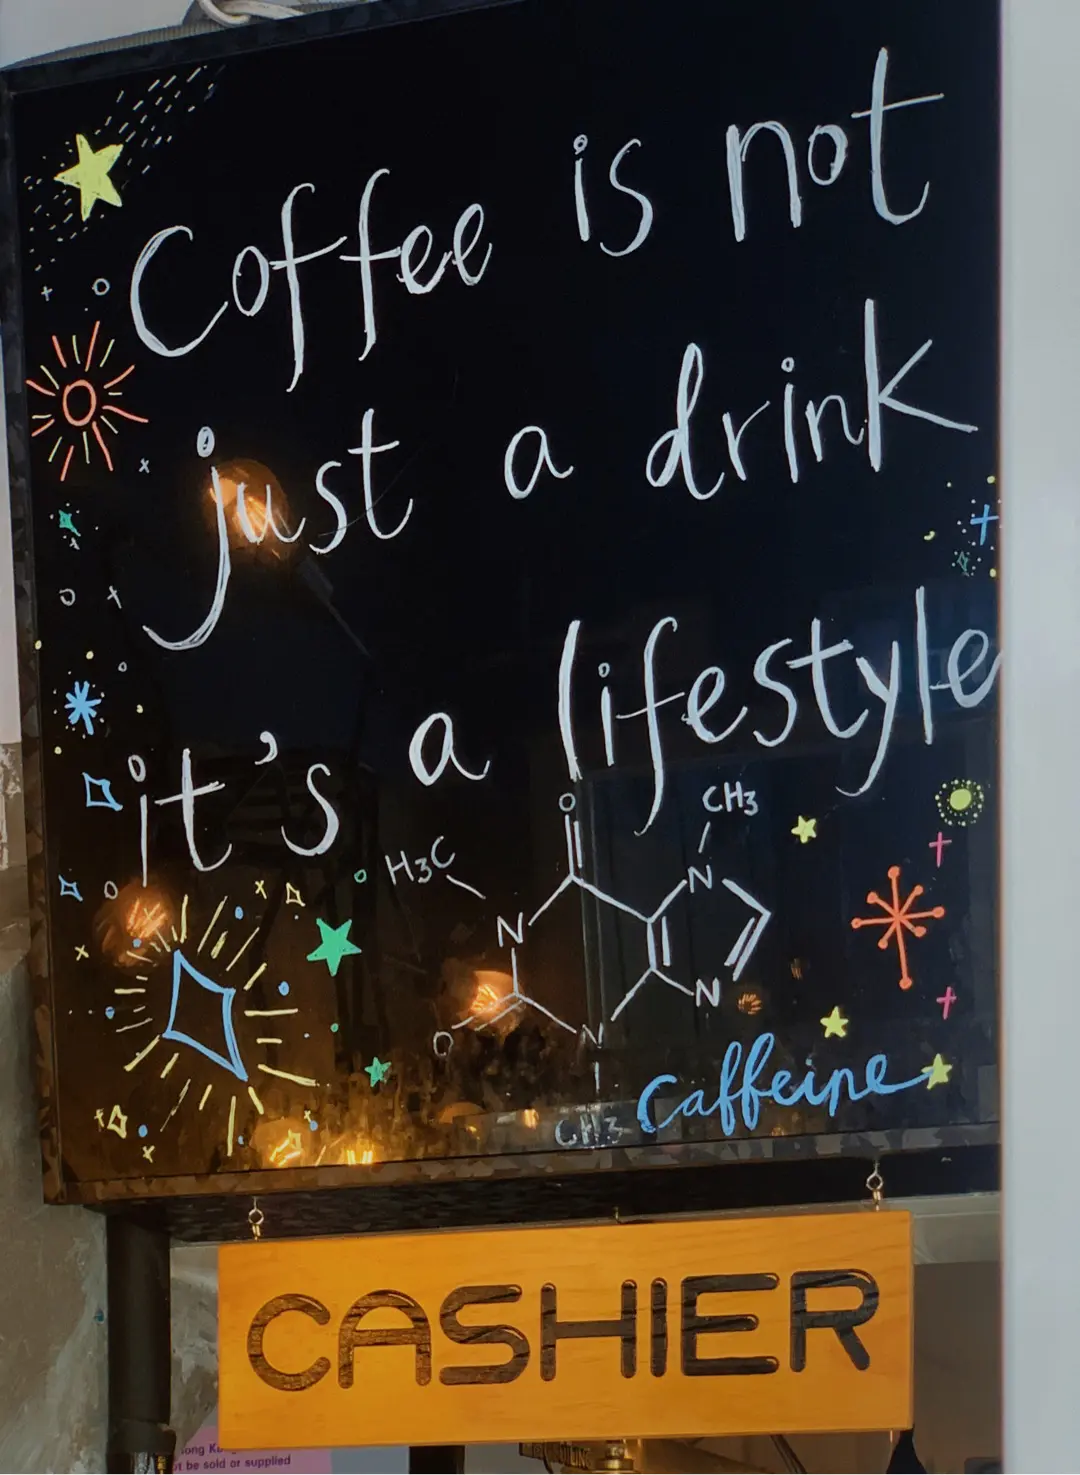 Coffee is not
just a drink
it's a lifestyle
O
CH3
H3C
N
N
N
O
N
CH3
Caffeine
CASHIER
be sold or supplied